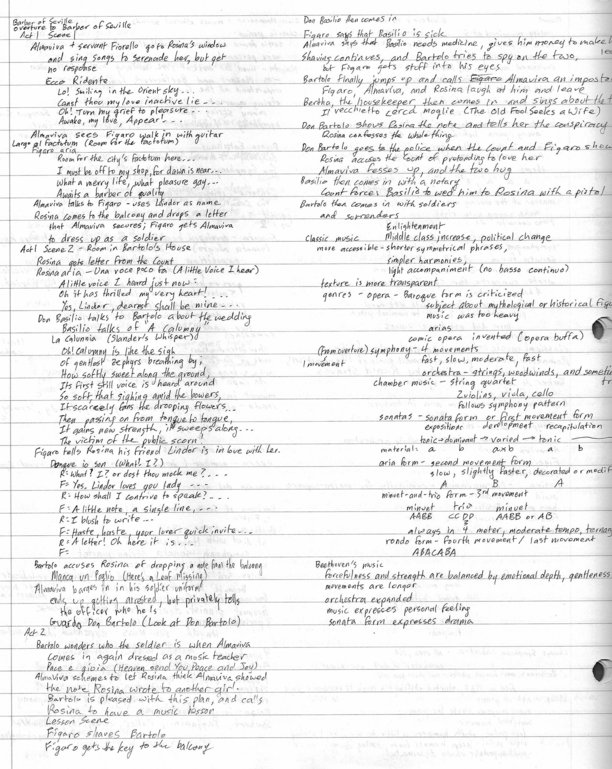 Barber of Seville
overture to Barber of Seville
Act 1 Scene 1
Almaviva + servant Fiorello go to Rosina's window
and sing songs to serenade her, but get
no response
Ecco Ridente
Lo! Smiling in the Orient sky...
Canst thou my love inactive lie ---
Oh! Turn my grief to pleasure...
Awake, my love, Appear ---
Almaviva sees Figaro walk in with guitar
Largo al factotum (Room for the factotum)
Figaro aria
Room for the city's factotum here...
I must be off to my shop, for dawn is near...
What a merry life, what pleasure gay...
Awaits a barber of quality
Almaviva talks to Figaro - uses Lindor as name
Rosina comes to the balcony and drops a letter
that Almaviva secures; Figaro gets Almaviva
to dress up as a soldier
Act 1 Scene 2 - Room in Bartolo's House
Rosina gets letter from the Count
Rosina aria - Una voce poco fa (A little Voice I hear)
A little voice I heard just now:
Oh it has thrilled my very heart! ...
Yes, Lindor, dearest shall be mine ---
Don Basilio talks to Bartolo about the wedding
Basilio talks of "A Calumny"
La Calunnia (Slander's Whisper)
Oh! Calumny is like the sigh
of gentlest Zephyrs breathing by;
How softly sweet along the ground,
Its first still voice is heard around
So soft that sighing amid the bowers,
It scarcely fans the drooping flowers...
Then passing on from tongue to tongue,
It gains new strength, it sweeps along...
The victim of the public scorn!
Figaro tells Rosina his friend Lindor is in love with her.
Dunque io son (What! I?)
R: What? I? or dost thou mock me? ...
F: Yes, Lindor loves you lady ---
R: How shall I contrive to speak? ...
F: A little note, a single line, ---
R: I blush to write ---
F: Haste, haste, your lover quick invite ---
R: A letter! Oh here it is ...
F:
Bartolo accuses Rosina of dropping a note from the balcony
Manca un Foglio (Here's a Leaf Missing)
Almaviva barges in in his soldier uniform
ends up getting arrested, but privately tells
the officer who he is
Guarda Don Bartolo (Look at Don Bartolo)
Act 2
Bartolo wonders who the soldier is when Almaviva
comes in again dressed as a music teacher
Pace e gioia (Heaven Send You Peace and Joy)
Almaviva schemes to let Rosina think Almaviva showed
the note Rosina wrote to another girl.
Bartolo is pleased with this plan, and calls
Rosina to have a music lesson
Lesson Scene
Figaro shaves Bartolo
Figaro gets the key to the balcony
Don Basilio then comes in
Figaro says that Basilio is sick
Almaviva says that Basilio needs medicine, gives him money to make
Shaving continues, and Bartolo tries to spy on the two,
but Figaro gets stuff into his eyes
Bartolo finally jumps up and calls Figaro Almaviva an imposto
Figaro, Almaviva, and Rosina laugh at him and leave
Bertha, the housekeeper, then comes in and sings about the
Il vecchietto cerca moglie (The Old Fool Seeks a Wife)
Don Bartolo shows Rosina the note and tells her the conspiracy
Rosina confesses the whole thing
Don Bartolo goes to the police when the Count and Figaro show
Rosina accuses the Count of pretending to love her
Almaviva fesses up, and the two hug
Basilio then comes in with a notary
Count forces Basilio to wed him to Rosina with a pistol
Bartolo then comes in with soldiers
and surrenders
Enlightenment
Classic music Middle class increase, political change
more accessible - shorter symmetrical phrases,
simpler harmonies,
light accompaniment (no basso continuo)
texture is more transparent
genres - opera - Baroque form is criticized
subject about mythological or historical figu
music was too heavy
arias
comic opera invented (opera buffa)
(from overture) symphony - 4 movements
1 movement fast, slow, moderate, fast
orchestra - strings, woodwinds, and someti
chamber music - string quartet
2 violins, viola, cello
follows symphony pattern
sonatas - sonata form or first movement form
exposition development recapitulation
tonic → dominant → varied → tonic
material: a b axb a b
aria form - second movement form
slow, slightly faster, decorated or modif
A B A
minuet-and-trio form - 3rd movement
minuet trio minuet
AABB CCDD AABB or AB
always in 3/4 meter, moderate tempo, ternary
rondo form - fourth movement / last movement
ABACABA
Beethoven's music
forcefulness and strength are balanced by emotional depth, gentleness
movements are longer
orchestra expanded
music expresses personal feeling
sonata form expresses drama